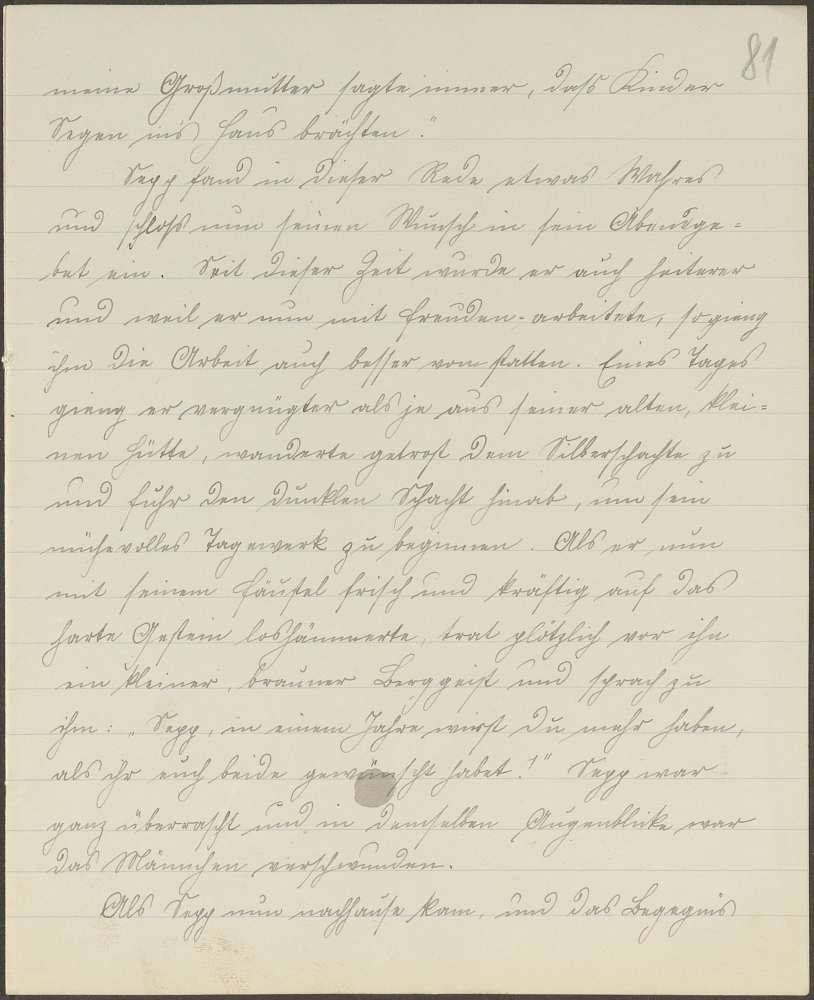 81
meine Großmutter sagte immer, dass Kinder
Segen ins Haus brächten."
Sepp fand in dieser Rede etwas Wahres
und schloss nun seinen Wunsch in sein Abendge=
bet ein. Seit dieser Zeit wurde er auch heiterer
und weil er nun mit Freuden arbeitete, so gieng
ihm die Arbeit auch besser von statten. Eines Tages
gieng er vergnügter als je aus seiner alten, klei=
nen Hütte, wanderte getrost dem Silberschachte zu
und fuhr den dunklen Schacht hinab, um sein
mühevolles Tagewerk zu beginnen. Als er nun
mit seinem Fäustel frisch und kräftig auf das
harte Gestein loshämmerte, trat plötzlich vor ihn
ein kleiner, brauner Berggeist und sprach zu
ihm: „Sepp, in einem Jahre wirst du mehr haben,
als ihr euch beide gewünscht habet!" Sepp war
ganz überrascht und in demselben Augenblicke war
das Männchen verschwunden.
Als Sepp nun nachhause kam, und das Begegnis